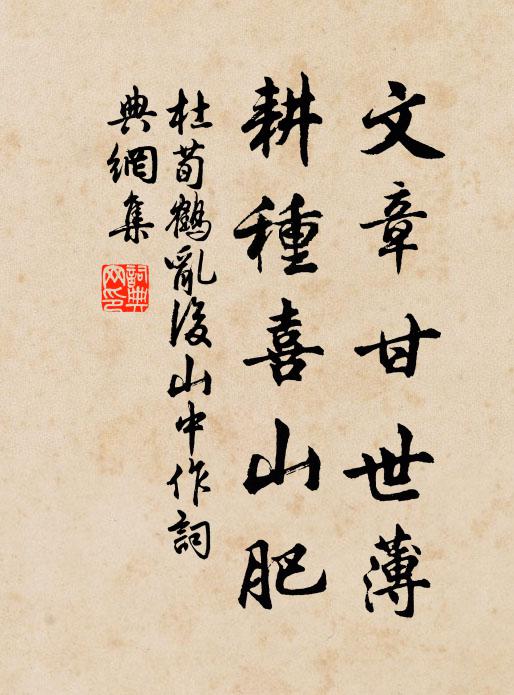 文章甘世薄
耕種喜山肥
杜荀鶴亂後山中作詞
典網集
詞典
网印